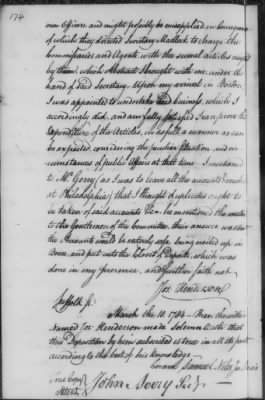 174
our Officers and might possibly be misapplied in consequence
of which they directed Secretary Matlock to charge the
Commissaries and Agents with the several articles receipt
by them; which Abstract I brought with me, under the
hand of said Secretary. Upon my arrival in Boston
I was appointed to undertake said business, which I
accordingly did, and am fully satisfied I can prove the
Expenditure of the Articles, in as full a manner as can
be expected considering the peculiar situation and cir
cumstances of public Affairs at that time. I mentioned
to Mr. Gerry (as I was to leave all the accounts I made
at Philadelphia) that I thought duplicates ought to
be taken of said accounts &c he mentioned the matter
to the Gentlemen of the Committee, their answer was that
the Accounts would be entirely safe being nailed up in
Boxes, and put into the Closet of Deposits, which was
done in my presence, and further saith not.
Jos Henderson
Suffolk ss.
March the 10. 1784 - Then the within
Named Jos Henderson made Solemn Oath that
this Deposition by him subscribed is true in all its parts
according to the best of his knowledge -
Coram Samuel
True Copy
Attest,
John Avery Secy